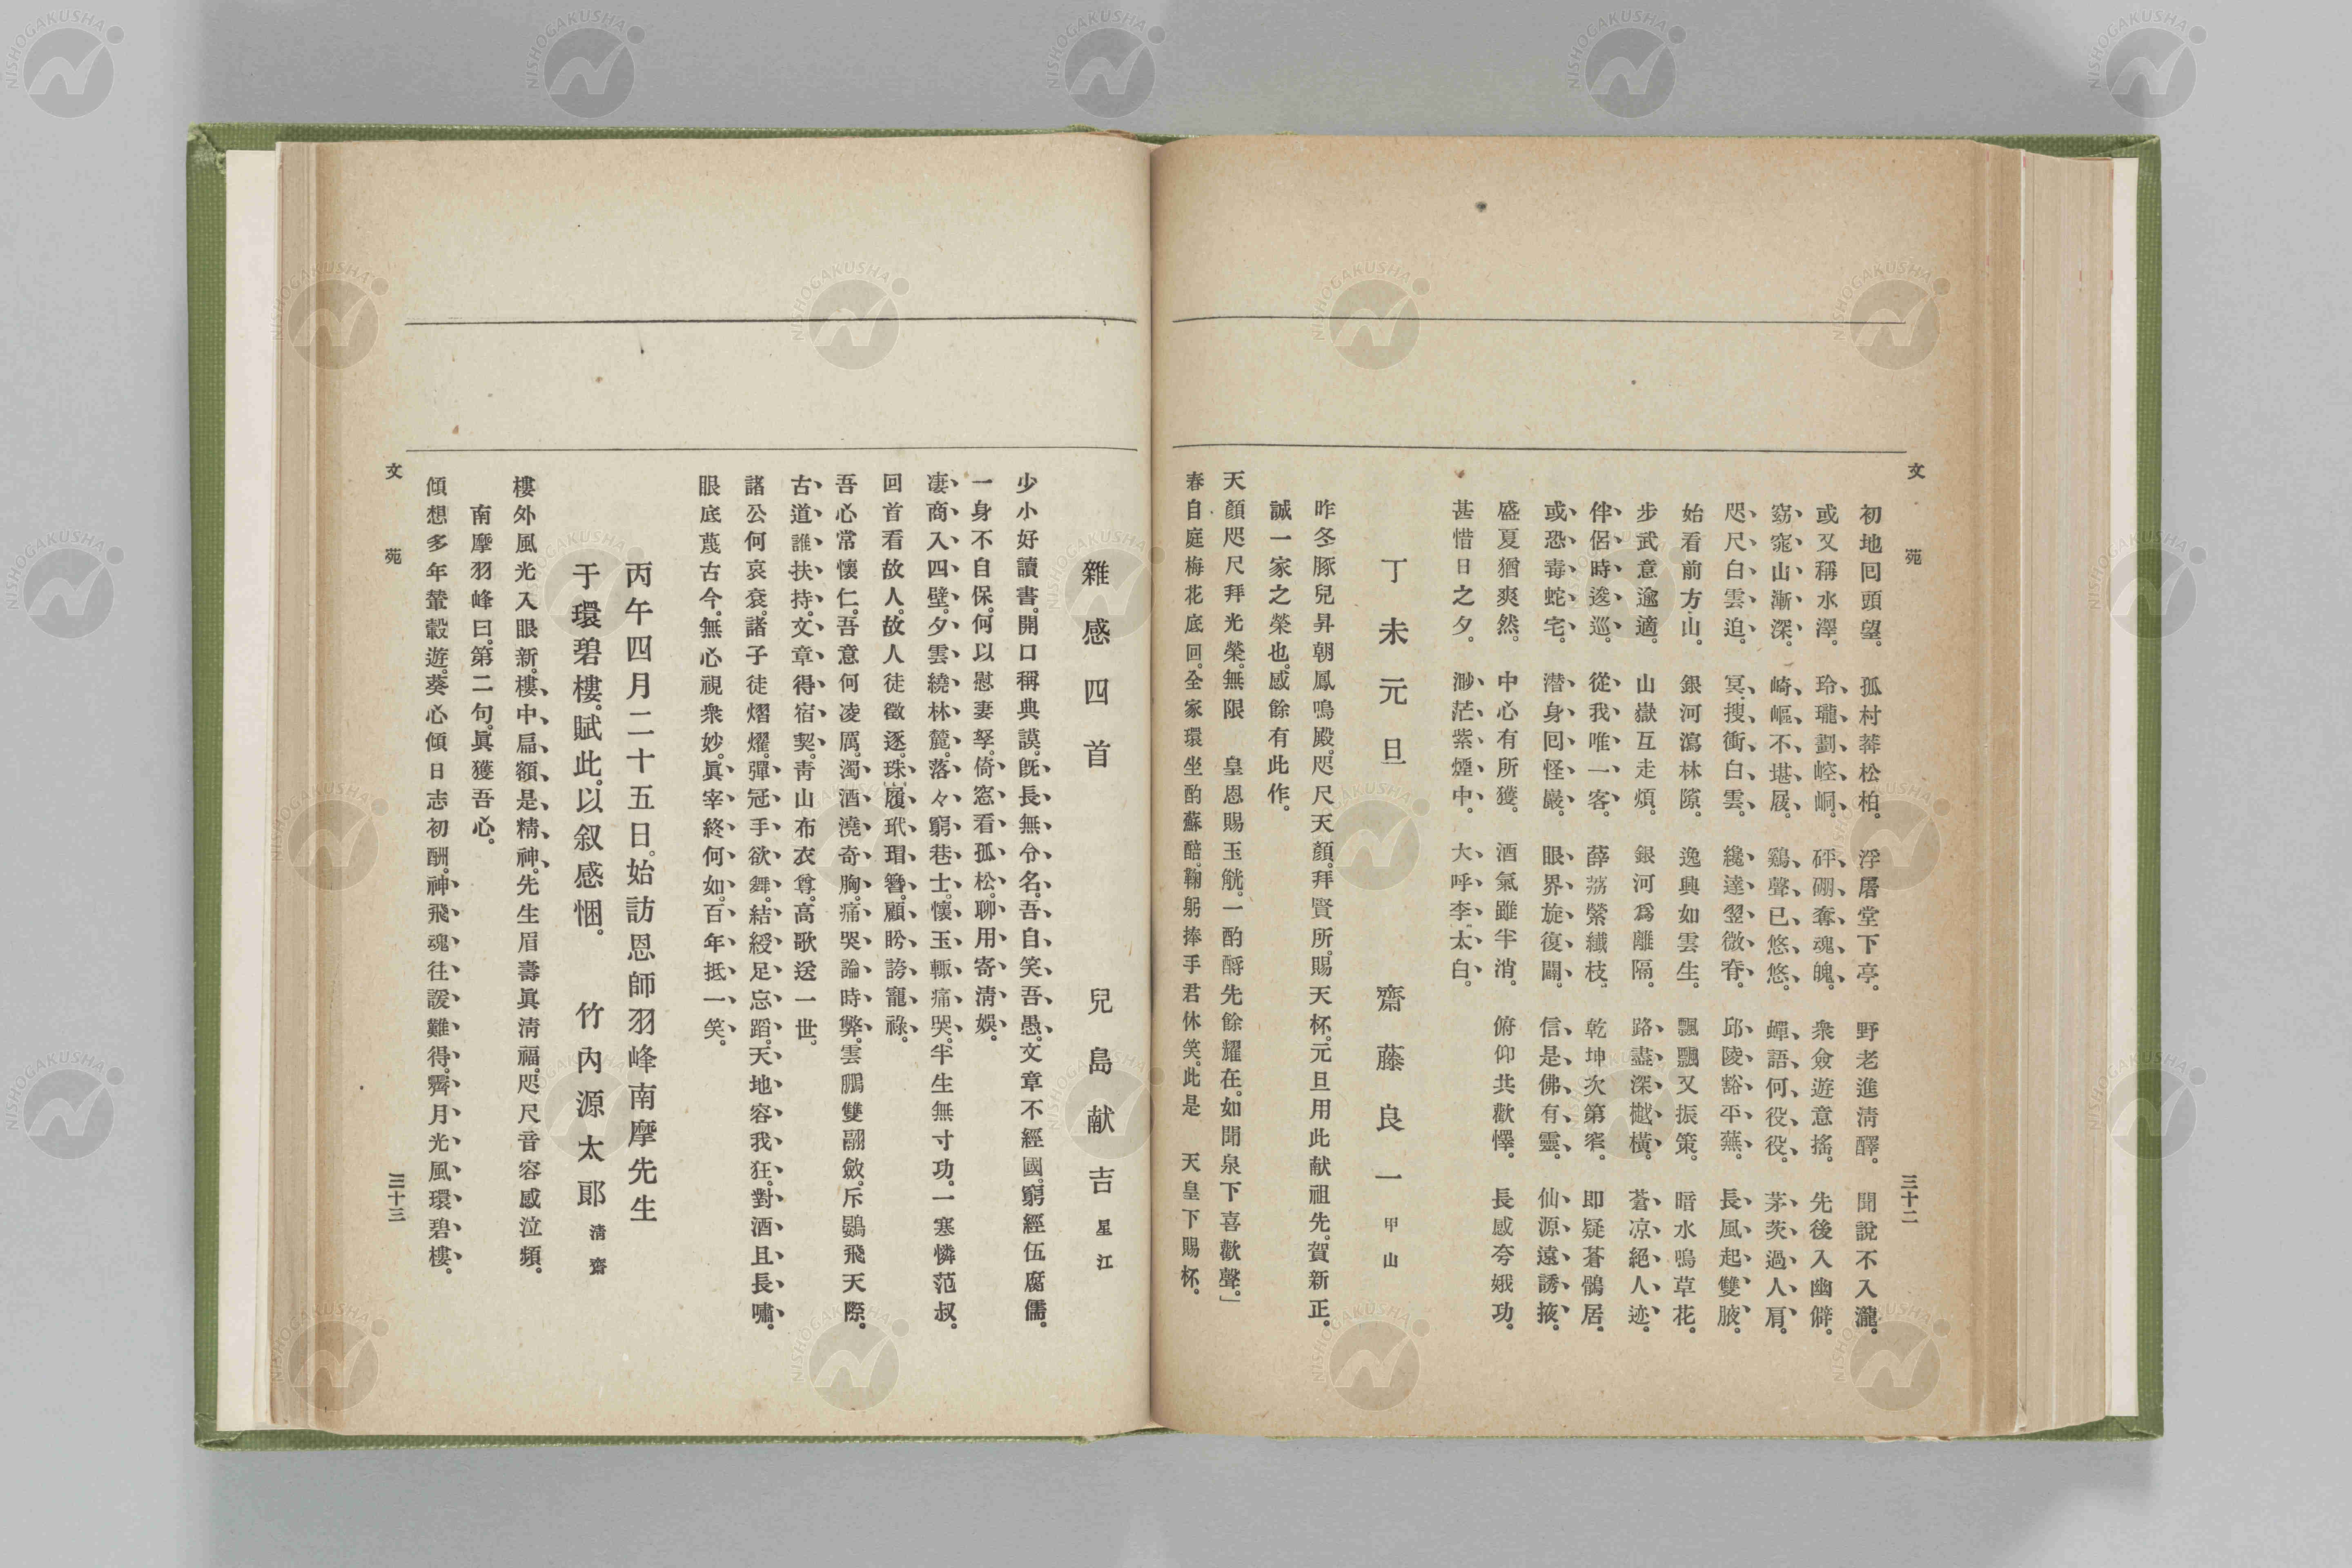 文苑
三十二
初地回頭望。孤村莾松柏。浮屠堂下亭。野老進淸醳。聞說不入瀧。
或又稱水澤。玲瓏劃崆峒。砰硼奪魂魄。衆僉遊意搖。先後入幽僻。
窈窕山漸深。崎嶇不堪屐。鷄聲已悠悠。蟬語何役役。茅茨過人肩。
咫尺白雲迫。冥搜衝白雲。纔達翠微脊。邱陵豁平蕪。長風起雙腋。
始看前方山。銀河瀉林隙。逸興如雲生。飄飄又振策。暗水鳴草花。
步武意逾適。山嶽互走煩。銀河爲離隔。路盡深樾橫。蒼凉絕人迹。
伴侶時逡巡。從我唯一客。薜荔縈纖枝。乾坤次第窄。即疑蒼鶻居。
或恐毒蛇宅。潜身回怪巖。眼界旋復闢。信是佛有靈。仙源遠誘掖。
盛夏猶爽然。中心有所獲。酒氣雖半消。俯仰共歡懌。長感夸娥功。
甚惜日之夕。渺茫紫煙中。大呼李太白。
丁未元旦 齋藤良一 甲山
昨冬豚兒昇朝鳳鳴殿。咫尺天顏。拜賢所。賜天杯。元旦用此献祖先。賀新正。
誠一家之榮也。感餘有此作。
天顏咫尺拜光榮。無限 皇恩賜玉觥。一酌酹先餘耀在。如聞泉下喜歡聲。」
春自庭梅花底回。全家環坐酌蘇醅。鞠躬捧手君休笑。此是 天皇下賜杯。
雜感四首 兒島献吉 星江
少小好讀書。開口稱典謨。旣長無分名。吾自笑吾愚。文章不經國。窮經伍腐儒。
一身不自保。何以慰妻孥。倚窓看孤松。聊用寄淸娛。
凄商入四壁。夕雲繞林麓。落々窮巷士。懷玉輙痛哭。半生無寸功。一寒憐范叔。
回首看故人。故人徒徵逐。珠履玳瑁簪。顧盻誇寵祿。
吾心常懷仁。吾意何凌厲。濁酒澆奇胸。痛哭論時弊。雲鵬雙翮斂。斥鷃飛天際。
古道誰扶持。文章得宿契。靑山布衣尊。高歌送一世。
諸公何哀袞。諸子徒熠燿。彈冠手欲舞。結綬足忘蹈。天地容我狂。對酒且長嘯。
眼底蔑古今。無心視衆妙。眞宰終何如。百年抵一笑。
丙午四月二十五日。始訪恩師羽峰南摩先生
于環碧樓。賦此。以叙感悃。 竹內源太郎 淸齋
樓外風光入眼新。樓中扁額是精神。先生眉壽眞淸福。咫尺音容感泣頻。
南摩羽峰曰。第二句。眞獲吾心。
傾想多年輦轂遊。葵心傾日志初酬。神飛魂往諼難得。霽月光風環碧樓。
文苑
三十三